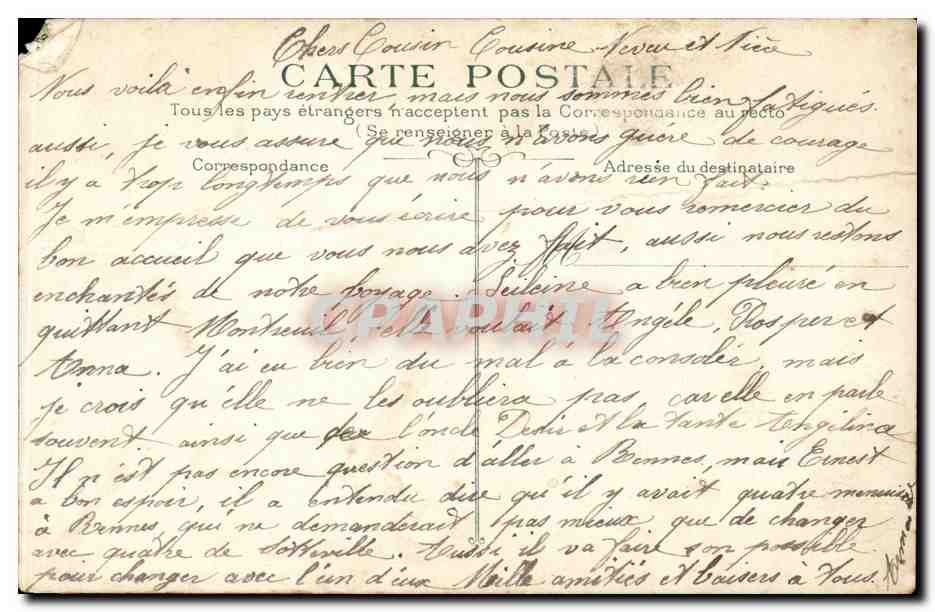 Chers Cousin Cousine Neveu et Nièce
CARTE POSTALE
Nous voilà enfin rentrer mais nous sommes bien fatigués
Tous les pays étrangers n'acceptent pas la Correspondance au recto
(Se renseigner à la Poste)
aussi, je vous assure que nous n'avons guère de courage
Correspondance
Adresse du destinataire
il y a trop longtemps que nous n'avons rien fait.
Je m'empresse de vous écrire pour vous remercier du
bon accueil que vous nous avez fait, aussi nous restons
enchantés de notre voyage. a bien pleuré en
CPAPHIL
quittant Montreuil elle voulait Angéle, Prosper et
Anna. J'ai eu bien du mal à la consoler, mais
je crois qu'elle ne les oubliera pas, car elle en parle
souvent ainsi que de l'oncle Désir et la tante Angélina
Il n'est pas encore question d'aller à Rennes, mais Ernest
a bon espoir, il a entendu dire qu'il y avait quatre
à Rennes, qui ne demanderait pas mieux que de changer
avec quatre de Sotteville. Aussi il va faire son possible
pour changer avec l'un d'eux Mille amitiés et baisers à tous.